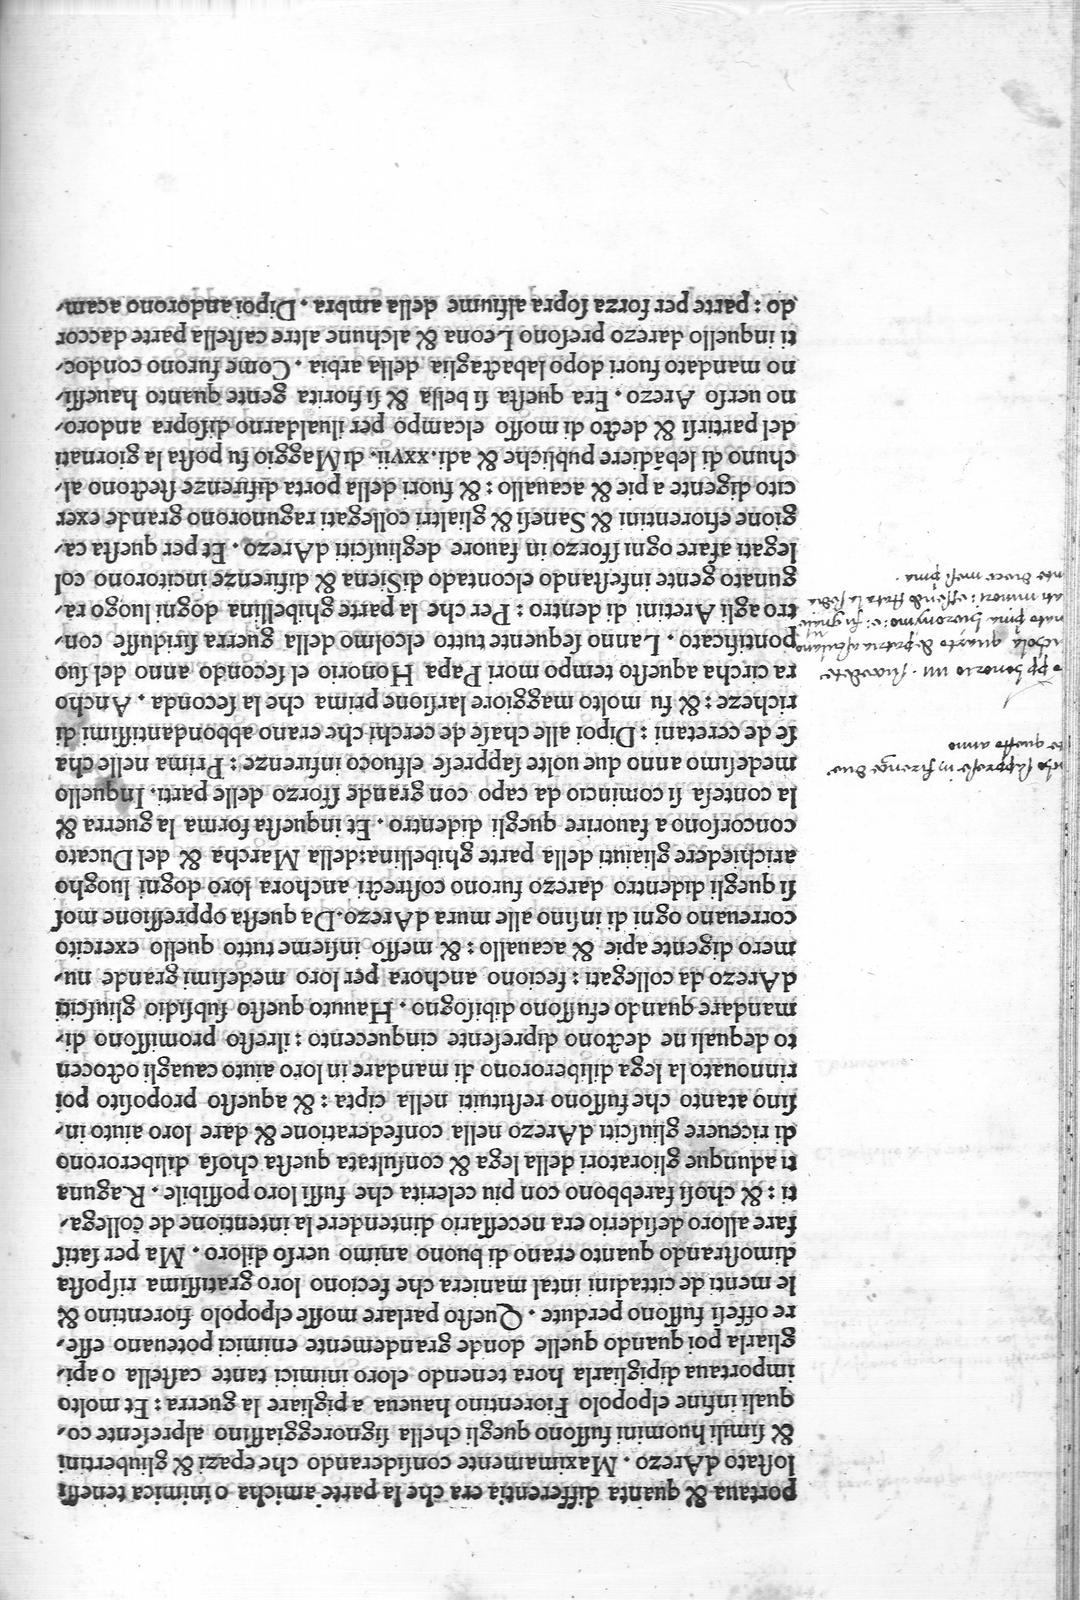 portaua & quanta differentia era che la parte amicha o inimica teneſſi
loſtato dArezo . Maximamente conſiderando che epazi & gliubertini
& ſimili huomini fuſſono quegli chella ſignoreggiaſſino alpreſente co-
quali infine elpopolo Fiorentino haueua a pigliare la guerra : Et molto
importaua dipigliarla hora tenendo eloro inimici tante caſtella o api-
gliarla poi quando quelle donde grandemente enimici poteuano eſſe-
re offeſi fuſſono perdute . Queſto parlare moſſe elpopolo fiorentino &
le menti de cittadini intal maniera che feciono loro gratiſſima riſpoſta
dimoſtrando quanto erano di buono animo uerſo diloro . Ma per ſatiſ
fare alloro deſiderio era neceſſario dintendere la intentione de collega-
ti : & choſi farebbono con piu celerita che fuſſi loro poſſibile . Raguna
ti adunque glioratori della lega & conſultata queſta choſa diliberorono
di riceuere gliuſciti dArezo nella confederatione & dare loro aiuto in-
ſino atanto che fuſſono reſtituiti nella cipta : & aqueſto propoſito poi
rinnouato la lega diliberorono di mandare in loro aiuto cauagli octocen
to dequali ne dectono dipreſente cinquecento : ilreſto promiſſono di-
mandare quando efuſſono dibiſogno . Hauuto queſto ſubſidio gliuſciti
dArezo da collegati : feciono anchora per loro medeſimi grande nu-
mero digente apie & acauallo : & meſſo inſieme tutto quello exercito
correuano ogni di inſino alle mura dArezo. Da queſta oppreſſione moſ
ſi quegli didentro darezo furono coſtrecti anchora loro dogni luogho
arichiedere gliaiuti della parte ghibellina: della Marcha & del Ducato
concorſono a fauorire quegli didentro . Et inqueſta forma la guerra &
la conteſa ſi comincio da capo con grande sforzo delle parti. Inquello
medeſimo anno due uolte ſappreſe elfuoco infirenze : Prima nelle cha
ſe de ceretani : Dipoi alle chaſe de cerchi che erano abbondantiſſimi di
richeze : & fu molto maggiore larſione prima che la ſeconda . Ancho
ra circha aqueſto tempo mori Papa Honorio el ſecondo anno del ſuo
pontificato . Lanno ſequente tutto elcolmo della guerra ſiriduſſe con-
tro agli Aretini di dentro : Per che la parte ghibellina dogni luogo ra-
gunato gente infeſtando elcontado diSiena & difirenze incitorono col
legati afare ogni sforzo in fauore degliuſciti dArezo . Et per queſta ca-
gione efiorentini & Saneſi & glialtri collegati ragunorono grande exer
cito digente a pie & acauallo : & fuori della porta difirenze ſtectono al-
chuno di lebādiere publiche & adi.xxvii. di Maggio fu poſta la giornati
del partirſi & decto di moſſo elcampo per ilualdarno diſopra andoro-
no uerſo Arezo . Era queſta ſi bella & ſi fiorita gente quanto haueſſi-
no mandato fuori dopo labactaglia della arbia . Come furono condoc-
ti inquello darezo preſono Leona & alchune altre caſtella parte daccor
do : parte per forza ſopra alfiume della ambra . Dipoi andorono acam-
ſappreſe in firenze due
queſto anno
pp honorio iiii .